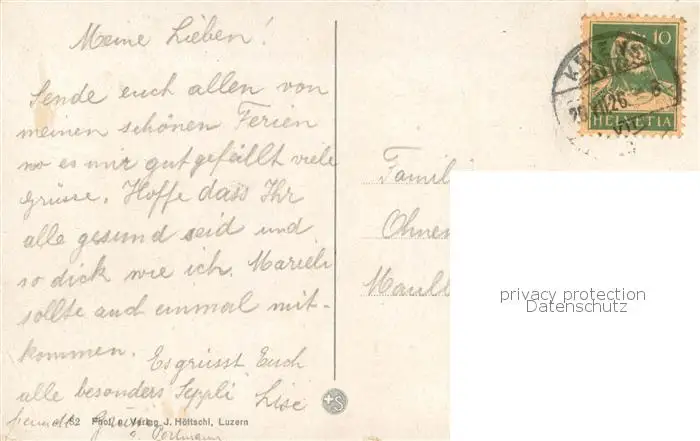 Meine Lieben!
Sende euch allen von
meinen schönen Ferien
wo es mir gut gefällt viele
Grüsse. Hoffe dass Ihr
alle gesund seid und
so dick wie ich. Marieli
sollte auch einmal mit-
kommen.
Es grüsst Euch
alle besonders Seppli
Lise
Grüsse
Portmann
62 Phot. u. Verlag J. Höltschi, Luzern
+S
10
HELVETIA
KRIENS
26
Famil
Ohne
Maul
privacy protection
Datenschutz